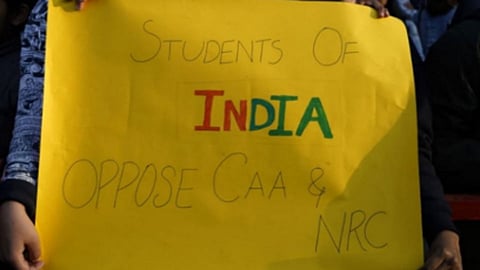 STUDENTS OF
INDIA
OPPOSE CAA &
NRC